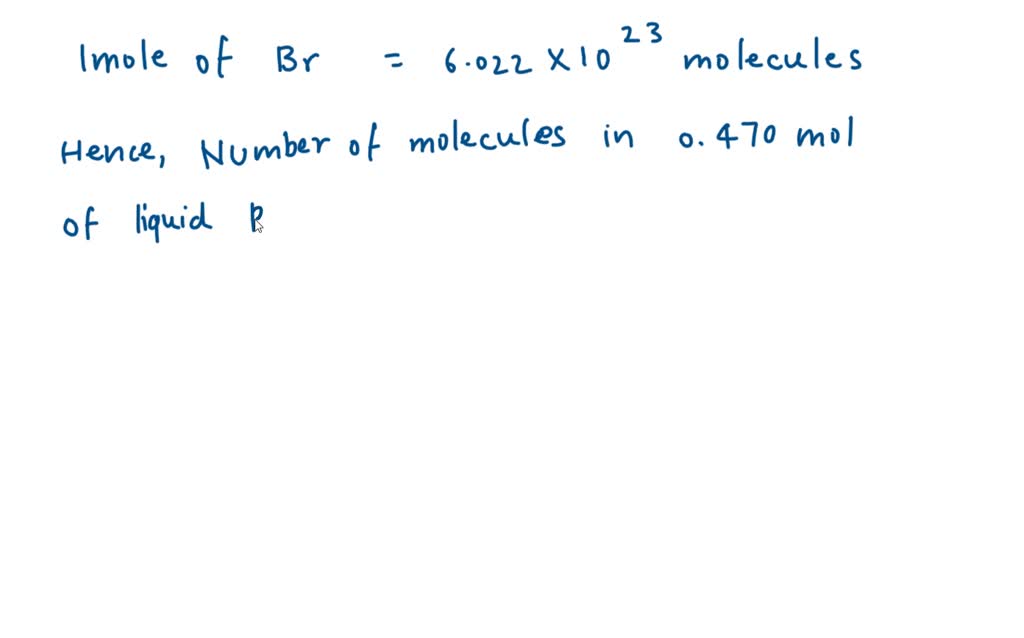 1mole of Br = 6.022 × 10^23 molecules
Hence, Number of molecules in 0.470 mol
of liquid